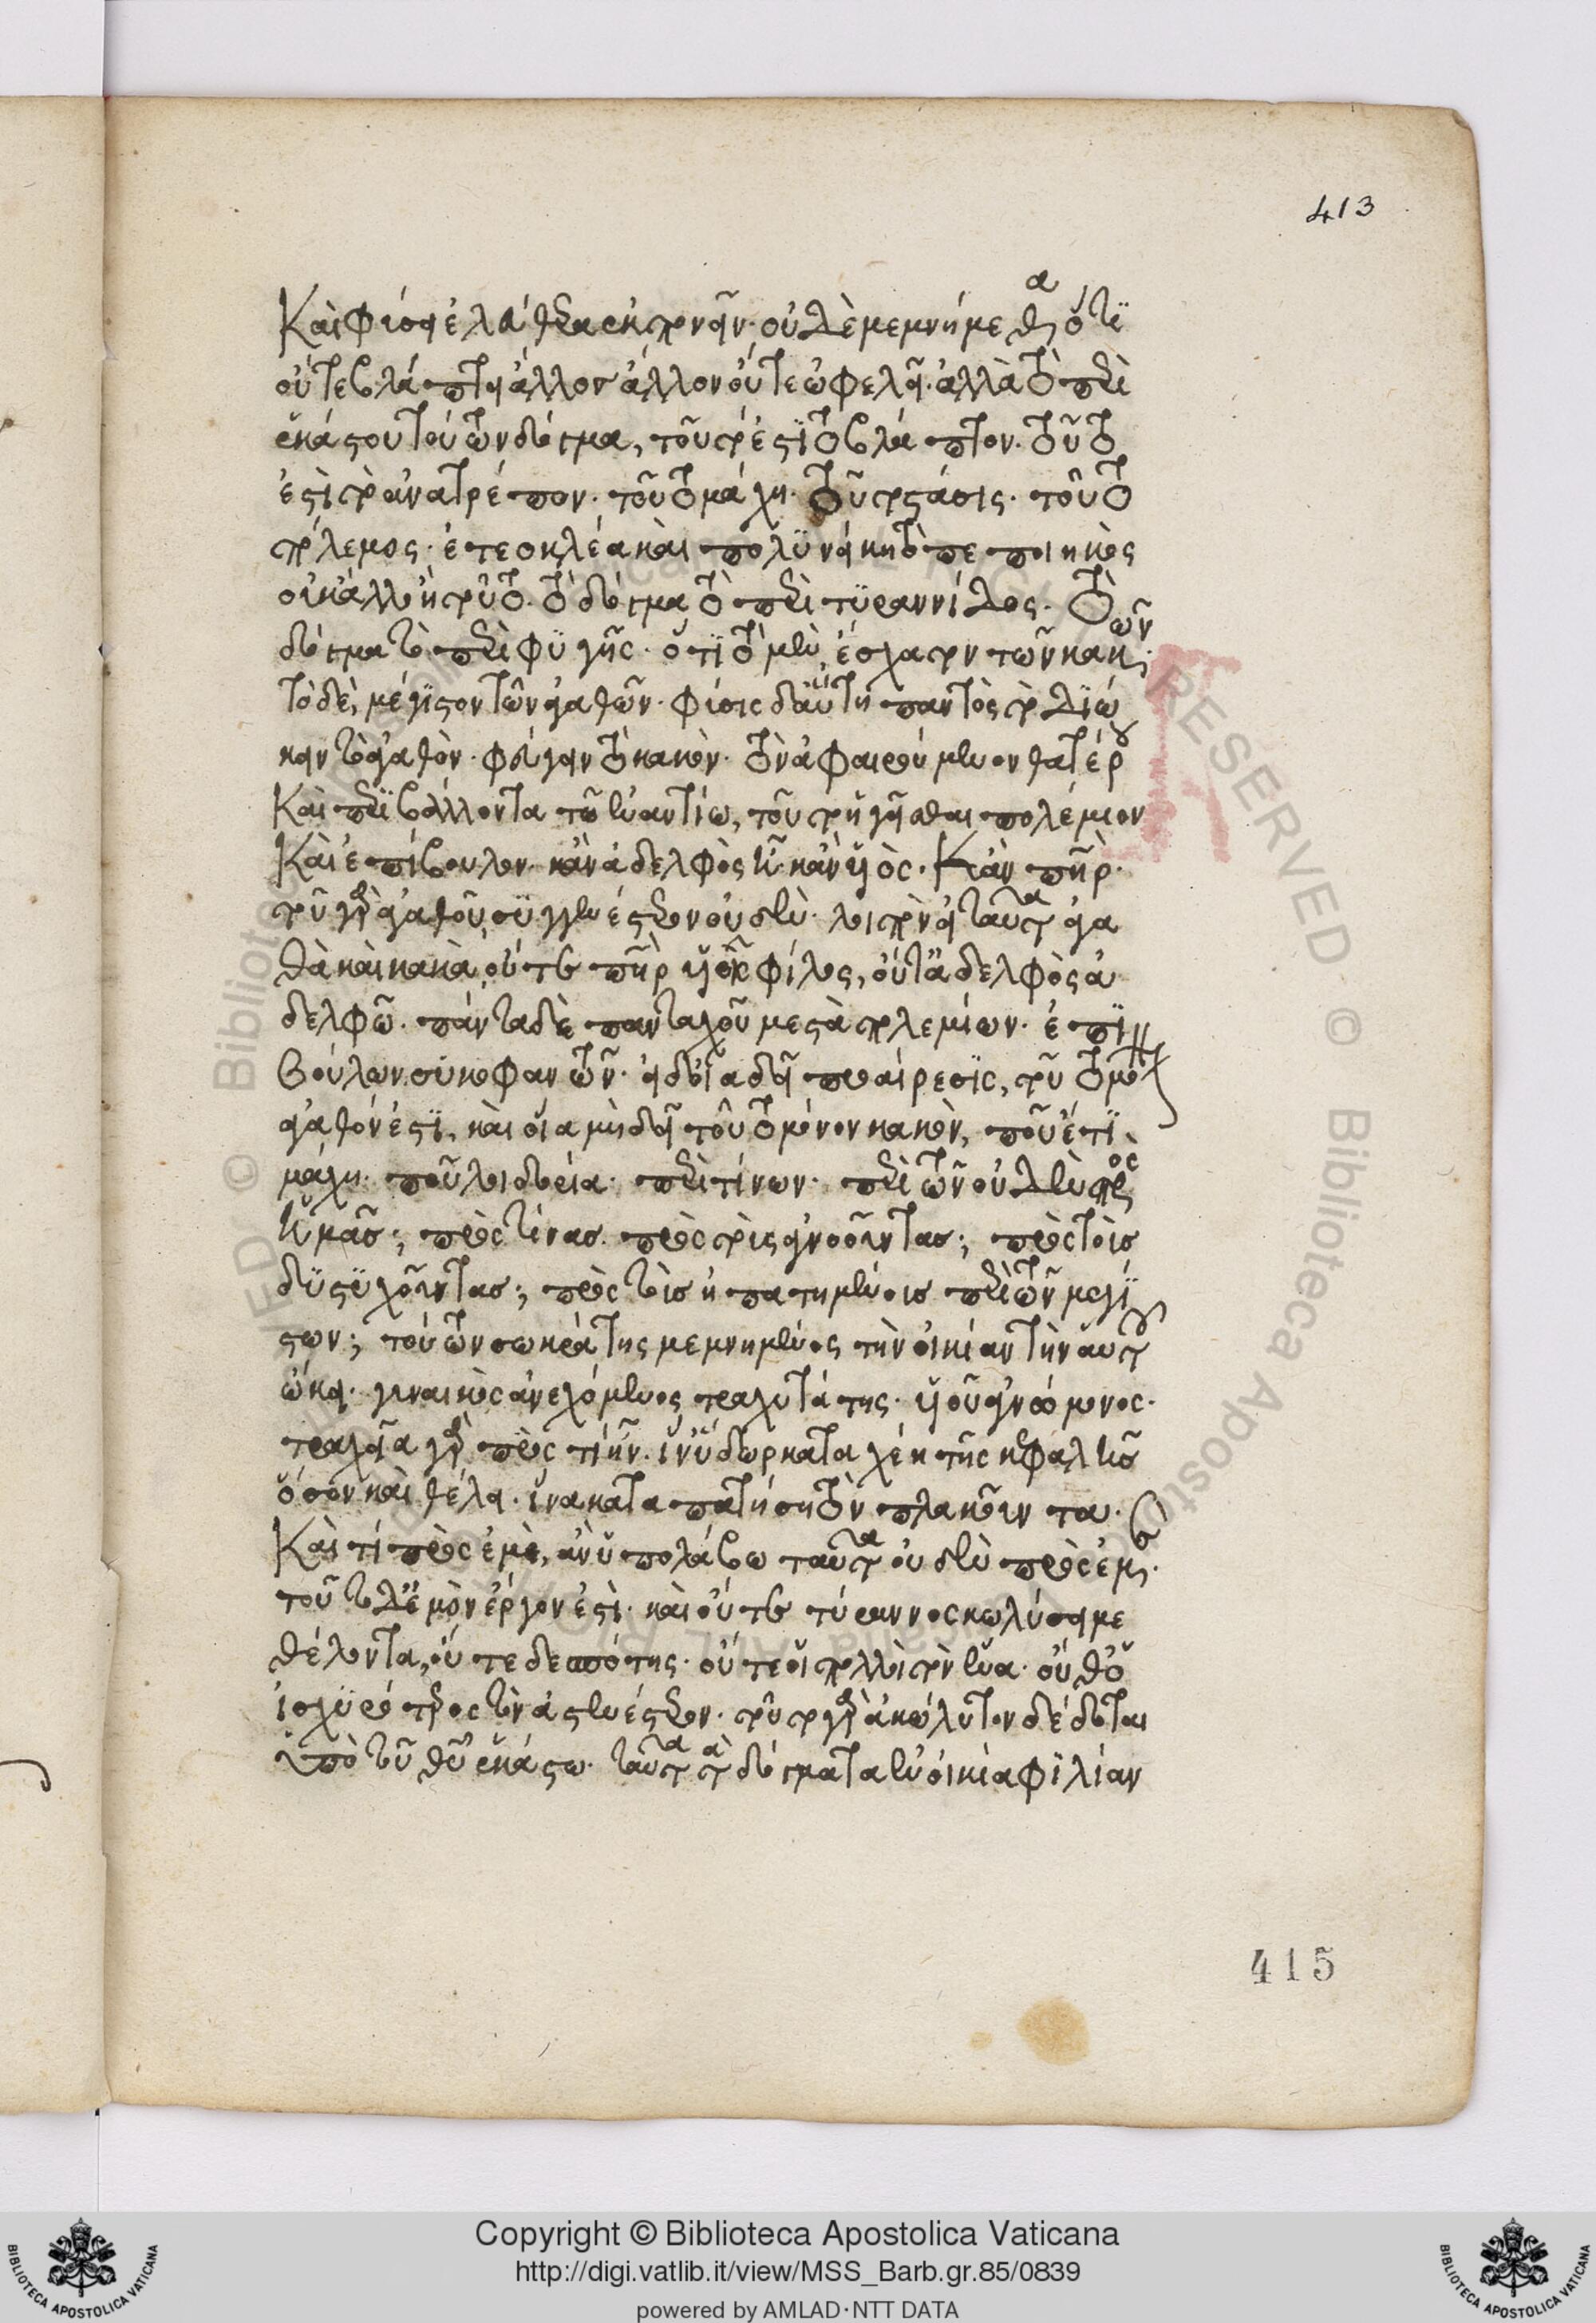 413
Καὶ φύσει ἐλευθέρα ἐκτήναν· οὐδὲ μεμνήμεθα ὅτι
οὔτε βλάπτει ἄλλος ἄλλον οὔτε ὠφελεῖ· ἀλλὰ τὸ περὶ
ἑκάστου τούτων δόγμα, τοῦτό ἐστι τὸ βλάπτον· τοῦτο
ἐστὶ τὸ ἀνατρέπον· τοῦτο μάχη· τοῦτο στάσις· τοῦτο
πόλεμος· ἐτεοκλέα καὶ πολυνείκη τὸ πεποιηκὸς
οὐκ ἄλλο ἢ τοῦτο· τὸ δόγμα τὸ περὶ τυραννίδος· τὸ
δόγμα τὸ περὶ φυγῆς· ὅτι τὸ μὲν ἔσχατον τῶν κακῶν·
τὸ δὲ, μέγιστον τῶν ἀγαθῶν· φύσις δ' αὕτη παντὸς τὸ διώ
κειν τὸ ἀγαθὸν· φεύγειν τὸ κακὸν· τὸν ἀφαιρούμενον θατέρου
Καὶ περιβάλλοντα τῷ ἐναντίω, τοῦτον ἡγεῖσθαι πολέμιον
Καὶ ἐπίβουλον· κἂν ἀδελφὸς ἦ κἂν υἱὸς· Κἂν πατὴρ·
τοῦ γὰρ ἀγαθοῦ συγγενέστερον οὐδὲν· λοιπὸν εἰ ταῦτα ἀγα
θὰ καὶ κακὰ, οὔτε πατὴρ υἱοῖς φίλος, οὔτ' ἀδελφὸς ἀ
δελφῶ· πάντα δὲ πανταχοῦ μεστὰ πολεμίων· ἐπι
βούλων συκοφαντῶν· εἰ δ' οἵα δεῖ προαίρεσις, τοῦτο μόνον
ἀγαθόν ἐστι, καὶ οἵα μὴ δεῖ τοῦτο μόνον κακὸν, ποῦ ἔτι
μάχη· ποῦ λοιδορία· περὶ τίνων· περὶ τῶν οὐδὲν πρὸς
ἡμᾶς; πρὸς τίνας· πρὸς τοὺς ἀγνοοῦντας; πρὸς τοὺς
δυστυχοῦντας; πρὸς τοὺς ἠπατημένους περὶ τῶν μεγί
στων; τούτων σωκράτης μεμνημένος τὴν οἰκίαν τὴν αὑτοῦ
ὤκει· γυναικὸς ἀνεχόμενος τραχυτάτης· υἱοῦ ἀγνώμονος·
τραχεῖα γὰρ πρὸς τί ἦν· ἵν' ὕδωρ καταχέη τῆς κεφαλῆς
ὅσον καὶ θέλει· ἵνα καταπατήση τὸν πλακοῦντα·
Καὶ τί πρὸς ἐμὲ, ἂν ὑπολάβω ταῦτα οὐδὲν πρὸς ἐμέ·
τοῦτο δ' ἐμὸν ἔργον ἐστὶ· καὶ οὔτε τύραννος κωλύσει με
θέλοντα, οὔτε δεσπότης· οὔτε οἱ πολλοὶ τὸν ἕνα· οὔθ' ὁ
ἰσχυρότερος τὸν ἀσθενέστερον· τοῦτο γὰρ ἀκώλυτον δέδοται
ὑπὸ τοῦ θεοῦ ἑκάστω· ταῦτα τὰ δόγματα ἐν οἰκία φιλίαν
415
Copyright © Biblioteca Apostolica Vaticana
http://digi.vatlib.it/view/MSS_Barb.gr.85/0839
powered by AMLAD·NTT DATA